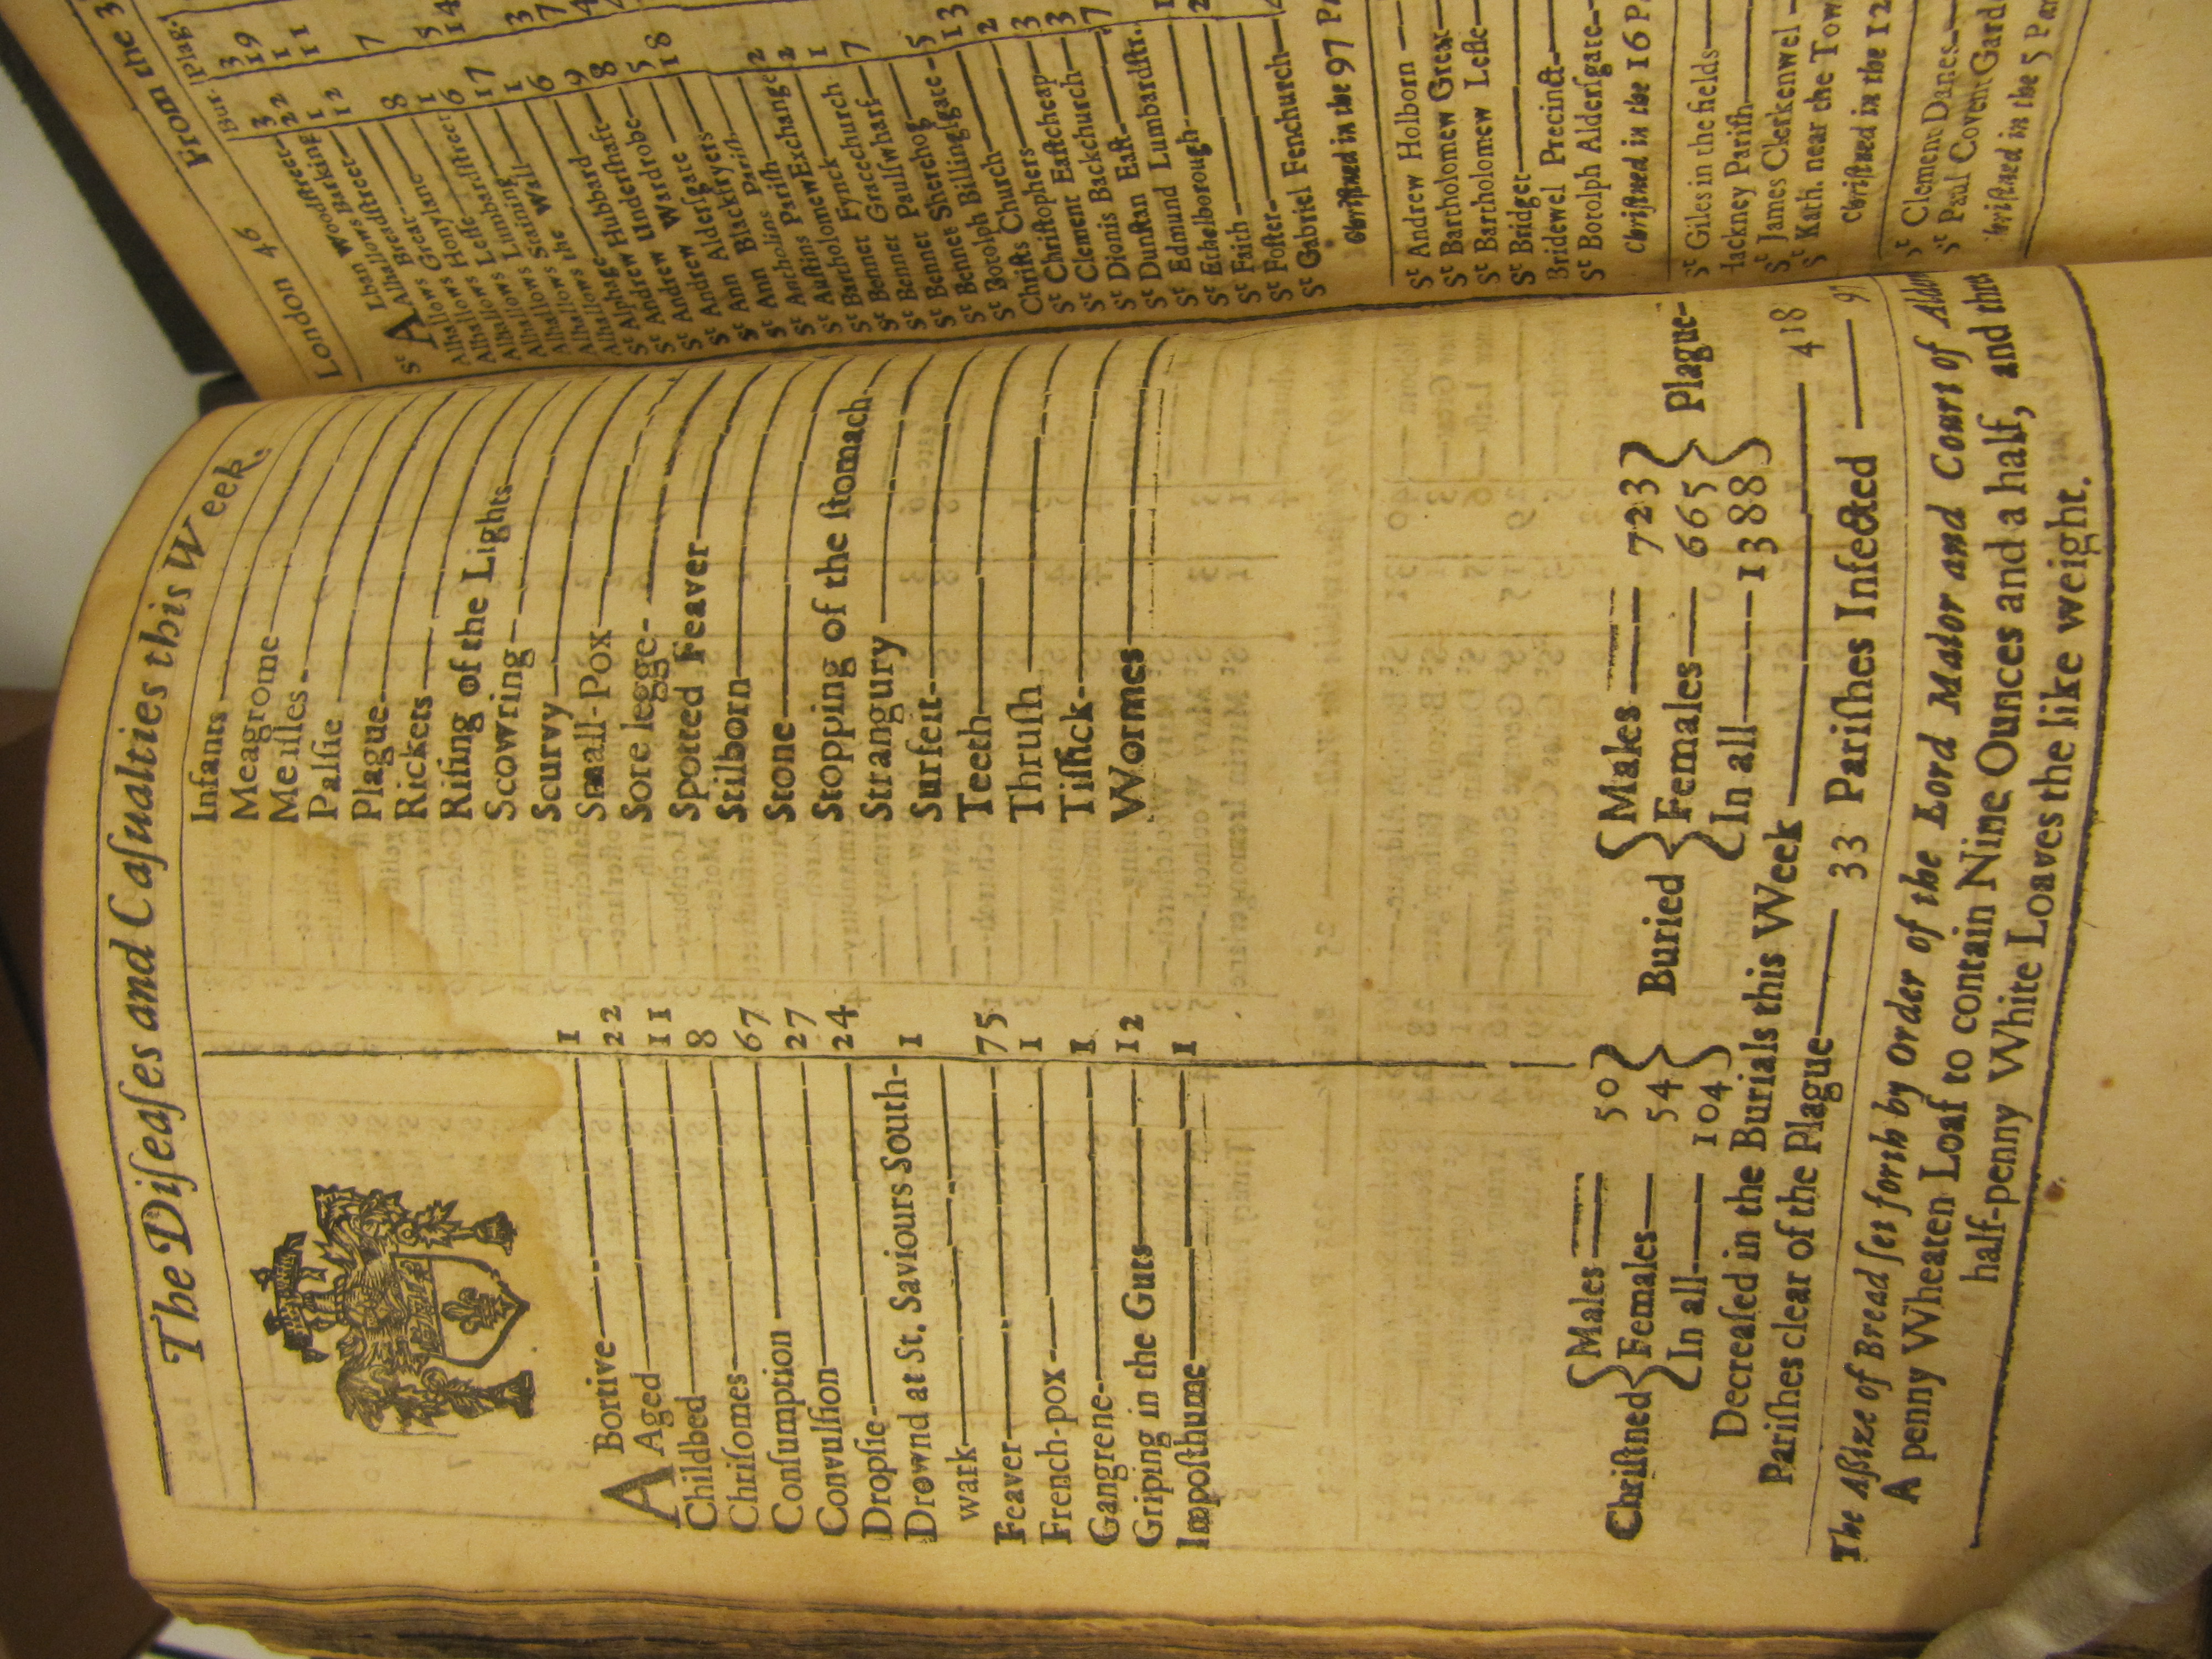 The Diſeaſes and Caſualties this Week.
ABortive 1
Aged 22
Childbed 11
Chriſomes 8
Conſumption 67
Convulſion 27
Dropſie 24
Drownd at St. Saviours South-
wark 1
Feaver 75
French-pox 1
Gangrene 1
Griping in the Guts 12
Impoſthume 1
Infants
Meagrome
Meaſles
Palſie
Plague
Rickets
Riſing of the Lights
Scowring
Scurvy
Small-Pox
Sore legge
Spotted Feaver
Stilborn
Stone
Stopping of the ſtomach
Strangury
Surfeit
Teeth
Thruſh
Tiſſick
Wormes
Chriſtned { Males 50
Females 54
In all 104 }
Buried { Males 723
Females 665
In all 1388 } Plague
Decreaſed in the Burials this Week 418
Pariſhes clear of the Plague 33 Pariſhes Infected 97
The Aſsize of Bread ſet forth by Order of the Lord Maior and Court of
A penny Wheaten Loaf to contain Nine Ounces and a half, and three
half-penny White Loaves the like weight.
London 46 From the 3
Bur. Plag.
St ALban Woodſtreet 3 3
Alhallows Barking 22 19
Alhallows Breadſtreet 1 1
Alhallows Great 12 11
Alhallows Honylane
Alhallows Leſſe 8 7
Alhallows Lumbardſtreet 1
Alhallows Staining 6 5
Alhallows the Wall 17 14
Alphage 6
Andrew Hubbard
St Andrew Underſhaft
St Andrew Wardrobe
St Ann Alderſgate
St Ann Blackfryers
St Antholins Pariſh
St Auſtins Pariſh
St Bartholomew Exchange
St Bennet Fynck
St Bennet Gracechurch
St Bennet Paulſwharf
St Bennet Sherehog
St Botolph Billingſgate
Chriſts Church
St Chriſtophers
St Clement Eaſtcheap
St Dionis Backchurch
St Dunſtan Eaſt
St Edmund Lumbardſtr.
St Ethelborough
St Faith
St Foſter
St Gabriel Fenchurch
Chriſtned in the 97 Pa
St Andrew Holborn
St Bartholomew Great
St Bartholomew Leſſe
St Bridget
Bridewel Precinct
St Botolph Alderſgate
Chriſtned in the 16 Pa
St Giles in the fields
Hackney Pariſh
St James Clerkenwel
St Kath. near the Tow
Chriſtned in the 12
St Clement Danes
St Paul Covent Gard
Chriſtned in the 5 Par